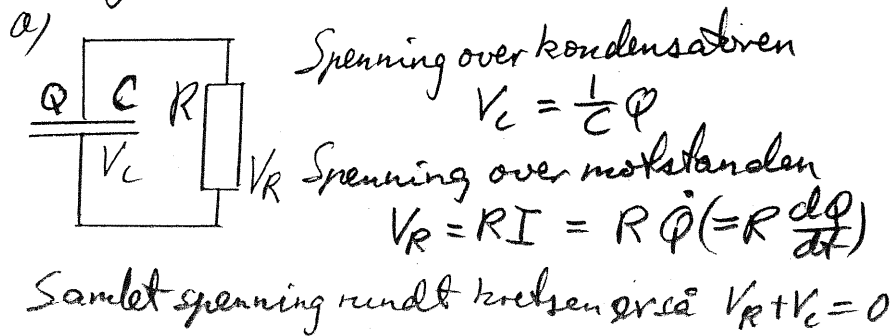 a)
Spenning over kondensatoren
Q C R
V_C = 1/C Q
V_C
V_R Spenning over motstanden
V_R = RI = R Q̇ (= R dQ/dt)
Samlet spenning rundt kretsen er så V_R + V_C = 0